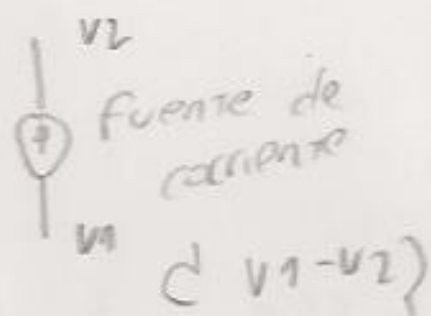 V2
fuente de
corriente
V1
¿ V1-V2?